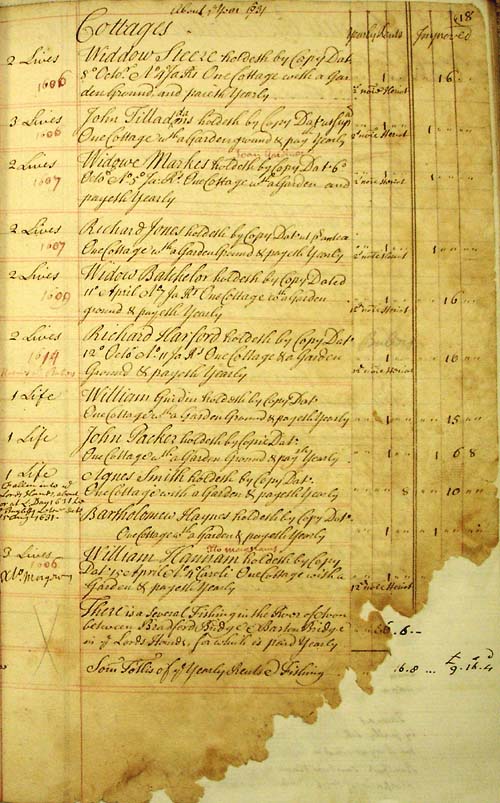 About ye Year 1631
18
Cottages
Yearly Rents
Improved
2 Lives
1606
Widdow Steeze holdeth by Copy Dat
8o Octobr Ao 4 Ja: Rs One Cottage with a Gar
den Ground and payeth Yearly
" " 1 " "
" " 16 " "
12d note Heriot
3 Lives
1606
John Tillad holdeth by Copy Dat ut sup
One Cottage wth a Garden ground & payth Yearly
" " 1 " "
1 " " "
12d note Heriot
2 Lives
1607
Joan Gardner
Widowe Markes holdeth by Copy Dat 6o
Octob Ao 5o Ja: Rs One Cottage wth a Garden and
payeth Yearly
" " 1 " "
12d note Heriot
2 Lives
1607
Richard Jones holdeth by Copy Dat ut antea
One Cottage wth a Garden Ground & payeth Yearly
" " 1 " "
1 " " "
12d note Heriot
2 Lives
1609
Widow Batchelor holdeth by Copy Dated
11o April Ao 7 Ja Rs One Cottage wth a Garden
ground & payeth Yearly
" " 1 " "
" " 16 " "
12d note Heriot
2 Lives
1614
Richard Harford holdeth by Copy Dat
12o Octob Ao 11 Ja Rs One Cottage & a Garden
Ground & payeth Yearly
" " 1 " "
" " 16 " "
12d note Heriot
1 Life
William holdeth by Copy Dat
One Cottage wth a Garden Ground & payeth Yearly
" " 1 " "
" " 15 " "
1 Life
John Packer holdeth by Copie Dat
One Cottage wth a Garden Ground & payth Yearly
" " 1 " "
1 6 8
1 Life
Agnes Smith holdeth by Copy Dat
One Cottage with a Garden & payeth Yearly
" " " 8
" " 10 " "
Fallen into ye
Lords Hands, about
Bartholomew Haynes holdeth by Copy Dat
One Cottage wth a Garden & payeth Yearly
" " 1 " "
1 " "
1631
3 Lives
1606
Morgan
Tho morgans
William Hannam holdeth by Copy
Dat April Ao 4 Caroli One Cottage with a
Garden & payeth Yearly
" " 1 " "
12d note Heriot
There is a Several Fishing in the River of Avon
between Bradford Bridge & Barton Bridge
in ye Lords Hands, for which is paid Yearly
6 . 8 --
Sum Totlis of ye Yearly Rents & Fishing
16 . 8 ... £9 . 16 . 4d